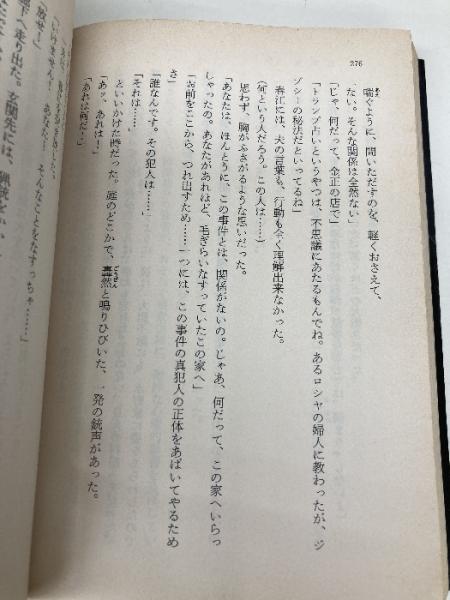 276
喘ぐように、問いただすのを、軽くおさえて、
「ない。そんな関係は全然ない」
「じゃ、何だって、金正の店で」
「トランプ占いというやつは、不思議にあたるもんでね。あるロシヤの婦人に教わったが、ジ
プシーの秘法だといってるね」
春江には、夫の言葉も、行動も全く理解出来なかった。
(何という人だろう。この人は……)
思わず、胸がふさがるような思いだった。
「あなたは、ほんとうに、この事件とは、関係がないの。じゃあ、何だって、この家へいらっ
しゃったの。あなたがあれほど、毛ぎらいなすっていたこの家へ」
「お前をここから、つれ出すため……一つには、この事件の真犯人の正体をあばいてやるため
さ」
「誰なんです。その犯人は……」
「それは……」
といいかけた時だった。庭のどこかで、轟然と鳴りひびいた、一発の銃声があった。
ごうぜん
「あッ、あれは！」
「あれは何だ！」
「いけません！ あなた、そんなことをなすっちゃ……」
「放せ！」
廊下へ走り出た。玄関先には、猟銃を